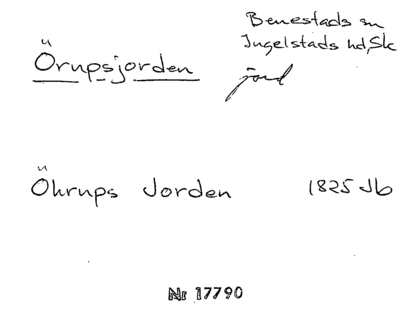 Örupsjorden
Benestads sn
Ingelstads hd, Sk
jord
Öhrups Jorden 1825 Jb
Nr 17790